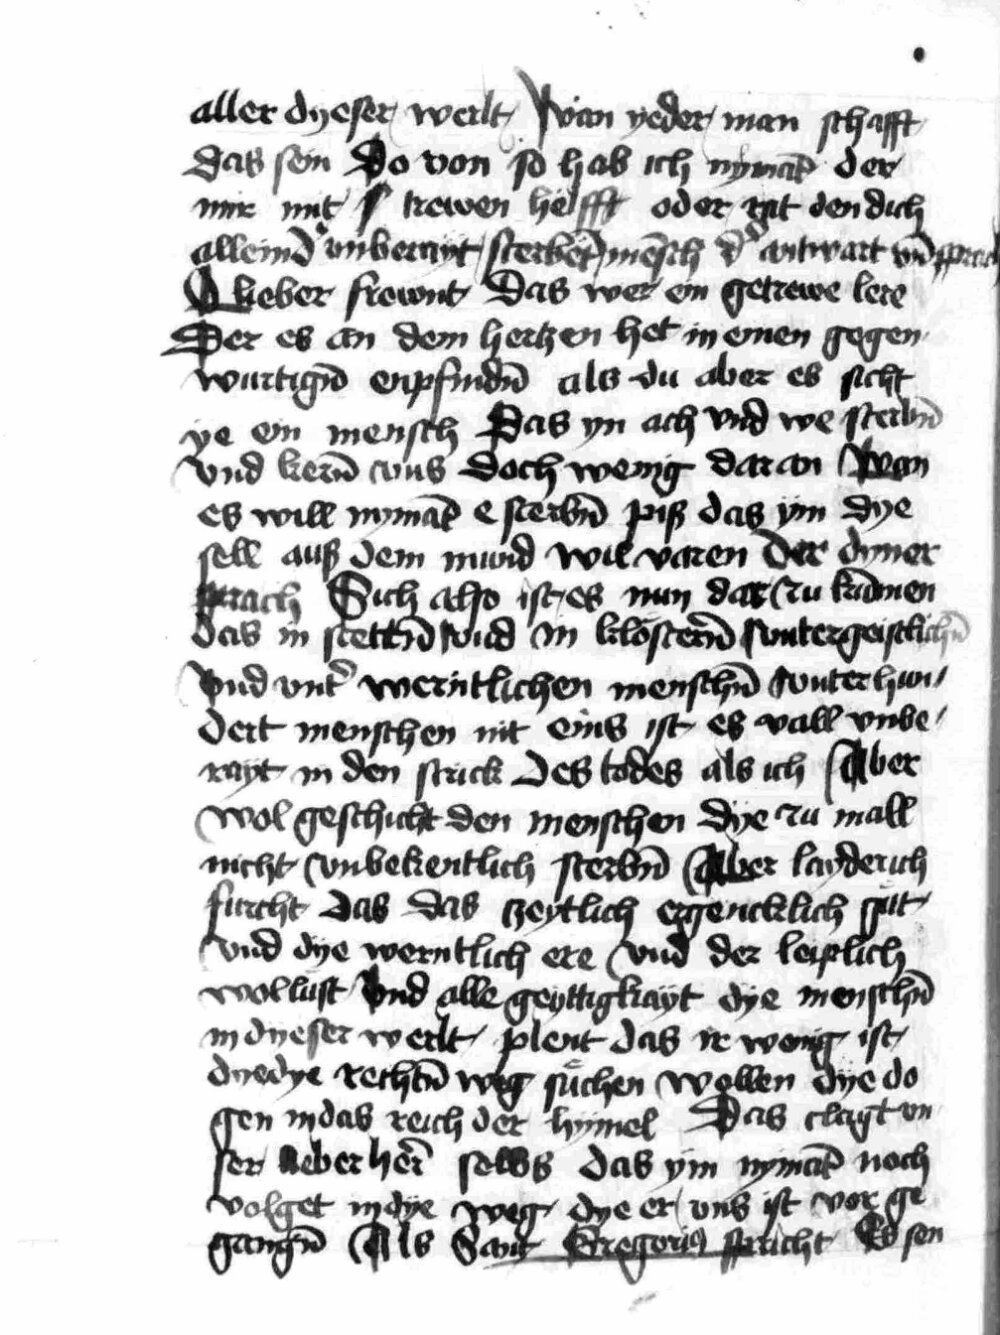 aller dyeser werlt Wan yeder man schafft
das sein Do von so hab ich nymāt der
mir mit trewen helfft oder rat den dich
allein d' vnberayt sterbēt mēsch d' antwart vn̄ sprach
O lieber frewnt Das wer ein getrewe lere
Der es an dem hertzen het in einen gegen
wurtign̄ enpfindn̄ als du aber es sicht
ye ein mensch Das yn ach vnd we sterbn̄
vnd kern̄ vns doch wenig daran Wan
es will nymāt e sterbn̄ piß das ym dye
sell auß dem mund wil varen Der dyner
sprach Sich also ist es nun dar zu kūmen
das in stettn̄ vnd in klöstern̄ vnter geistlichn̄
Vnd vnt' werntlichen menschn̄ vnter hun
dert menschen nit eins ist es vall vnbe
rayt in den strick Des todes als ich Aber
wol geschicht den menschen dye zu mall
nicht vnbekentlich sterbn̄ Aber layder ich
furcht das das zeytlich ergencklich gut
vnd dye werntlich ere vnd der leiplich
wollust Vnd alle geyttigkayt dye menschn̄
in dyeser werlt plent das ir wenig ist
dye dye rechtn̄ weg suchen wollen dye do
gen in das reich der hymel Das clagt vn
ser lieber her̄ selbs das ym nymāt noch
volget in dye weg dye er vns ist vor ge
gangn̄ Als Sant Gregorius spricht Es sen